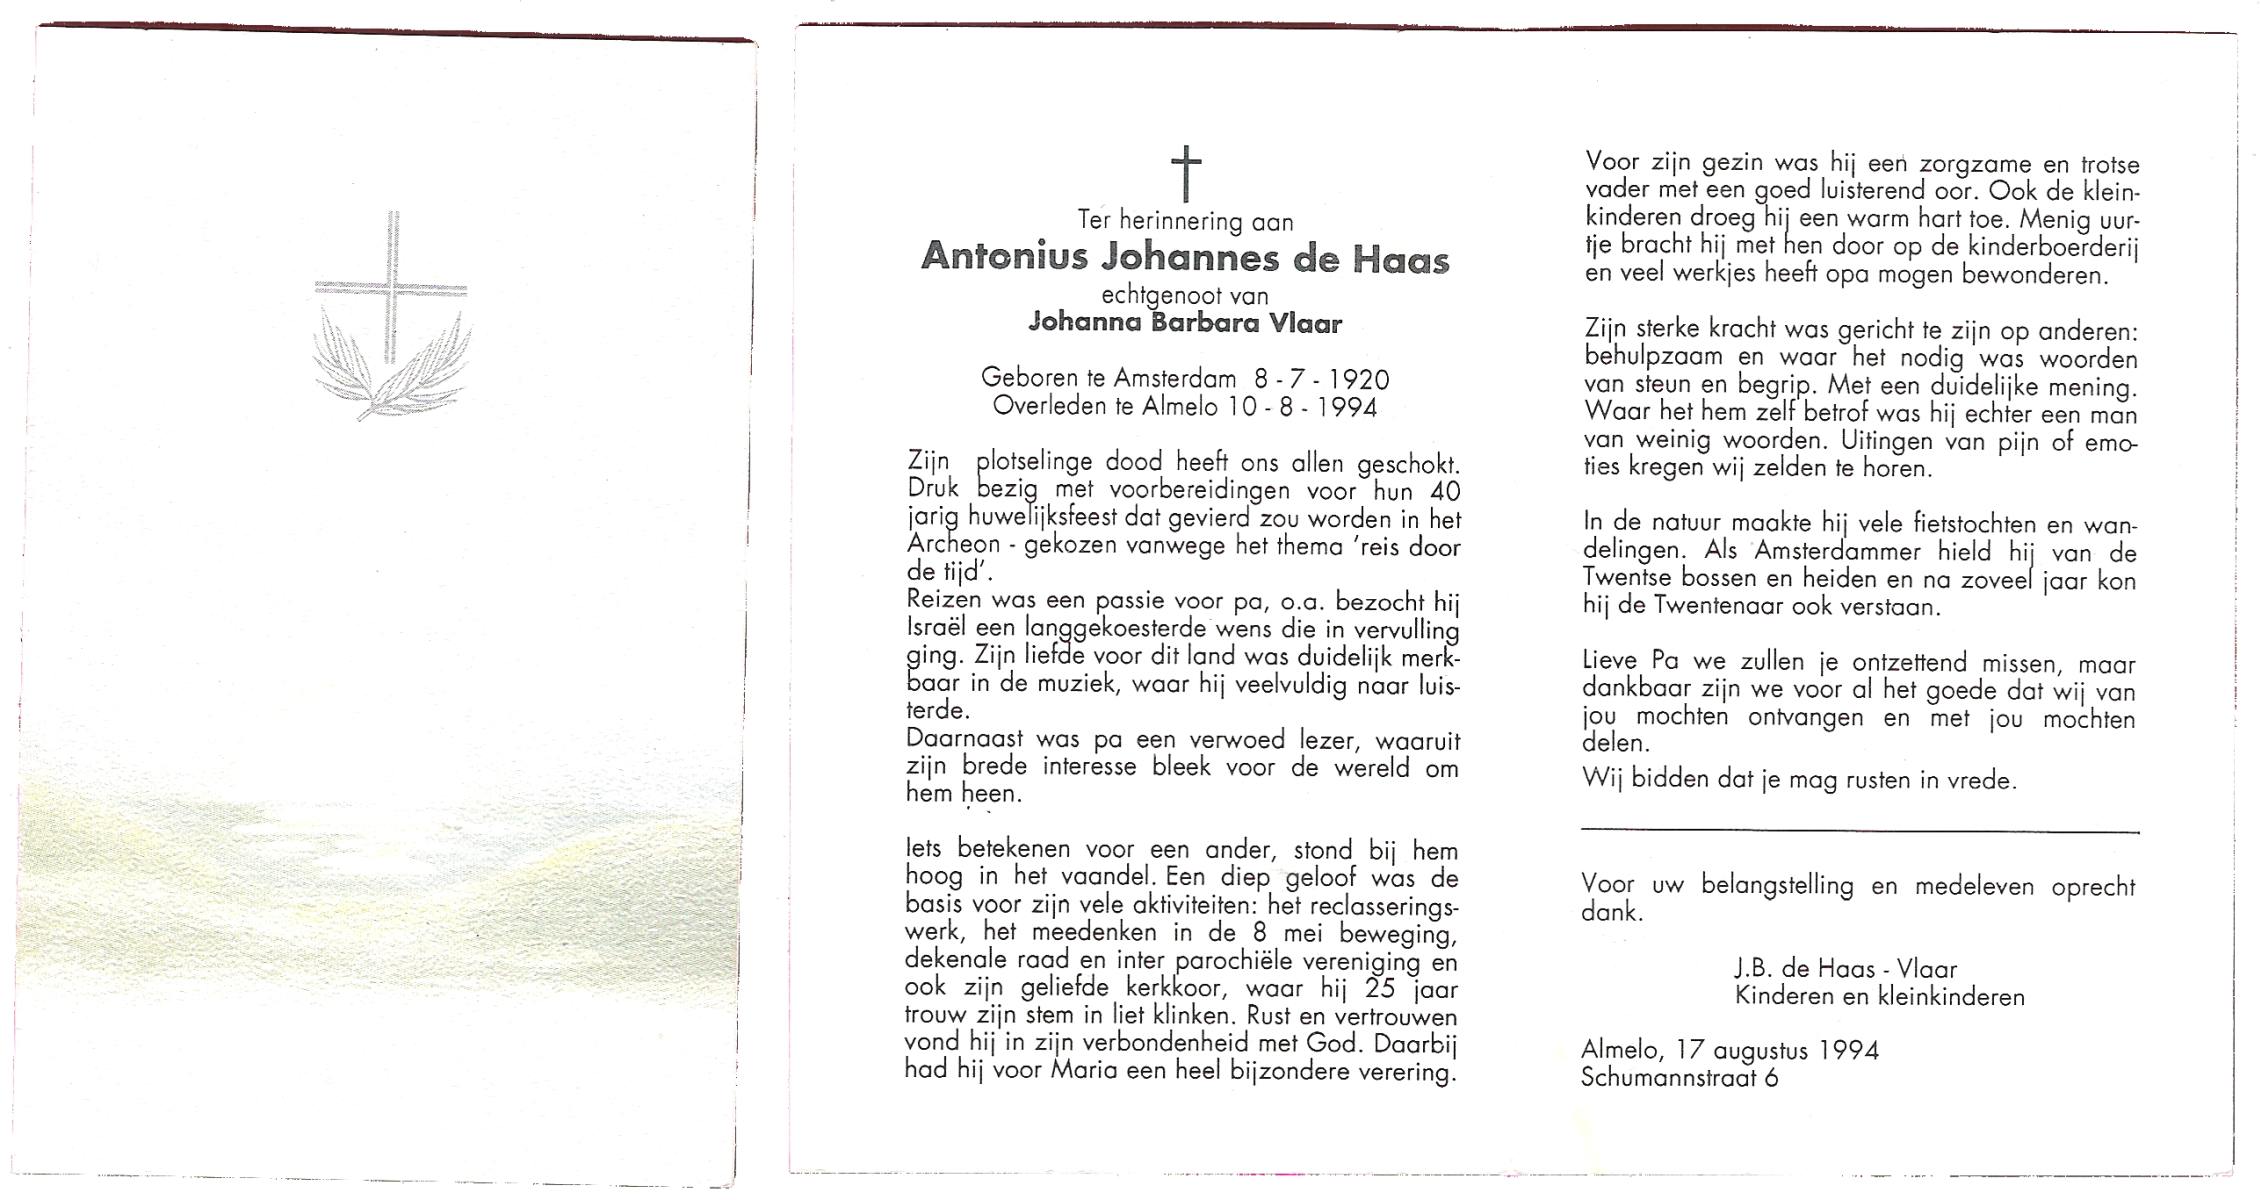 Ter herinnering aan
Antonius Johannes de Haas
echtgenoot van
Johanna Barbara Vlaar
Geboren te Amsterdam 8 - 7 - 1920
Overleden te Almelo 10 - 8 - 1994
Zijn plotselinge dood heeft ons allen geschokt.
Druk bezig met voorbereidingen voor hun 40
jarig huwelijksfeest dat gevierd zou worden in het
Archeon - gekozen vanwege het thema 'reis door
de tijd'.
Reizen was een passie voor pa, o.a. bezocht hij
Israël een langgekoesterde wens die in vervulling
ging. Zijn liefde voor dit land was duidelijk merk-
baar in de muziek, waar hij veelvuldig naar luis-
terde.
Daarnaast was pa een verwoed lezer, waaruit
zijn brede interesse bleek voor de wereld om
hem heen.
Iets betekenen voor een ander, stond bij hem
hoog in het vaandel. Een diep geloof was de
basis voor zijn vele aktiviteiten: het reclasserings-
werk, het meedenken in de 8 mei beweging,
dekenale raad en inter parochiële vereniging en
ook zijn geliefde kerkkoor, waar hij 25 jaar
trouw zijn stem in liet klinken. Rust en vertrouwen
vond hij in zijn verbondenheid met God. Daarbij
had hij voor Maria een heel bijzondere verering.
Voor zijn gezin was hij een zorgzame en trotse
vader met een goed luisterend oor. Ook de klein-
kinderen droeg hij een warm hart toe. Menig uur-
tje bracht hij met hen door op de kinderboerderij
en veel werkjes heeft opa mogen bewonderen.
Zijn sterke kracht was gericht te zijn op anderen:
behulpzaam en waar het nodig was woorden
van steun en begrip. Met een duidelijke mening.
Waar het hem zelf betrof was hij echter een man
van weinig woorden. Uitingen van pijn of emo-
ties kregen wij zelden te horen.
In de natuur maakte hij vele fietstochten en wan-
delingen. Als Amsterdammer hield hij van de
Twentse bossen en heiden en na zoveel jaar kon
hij de Twentenaar ook verstaan.
Lieve Pa we zullen je ontzettend missen, maar
dankbaar zijn we voor al het goede dat wij van
jou mochten ontvangen en met jou mochten
delen.
Wij bidden dat je mag rusten in vrede.
Voor uw belangstelling en medeleven oprecht
dank.
J.B. de Haas - Vlaar
Kinderen en kleinkinderen
Almelo, 17 augustus 1994
Schumannstraat 6